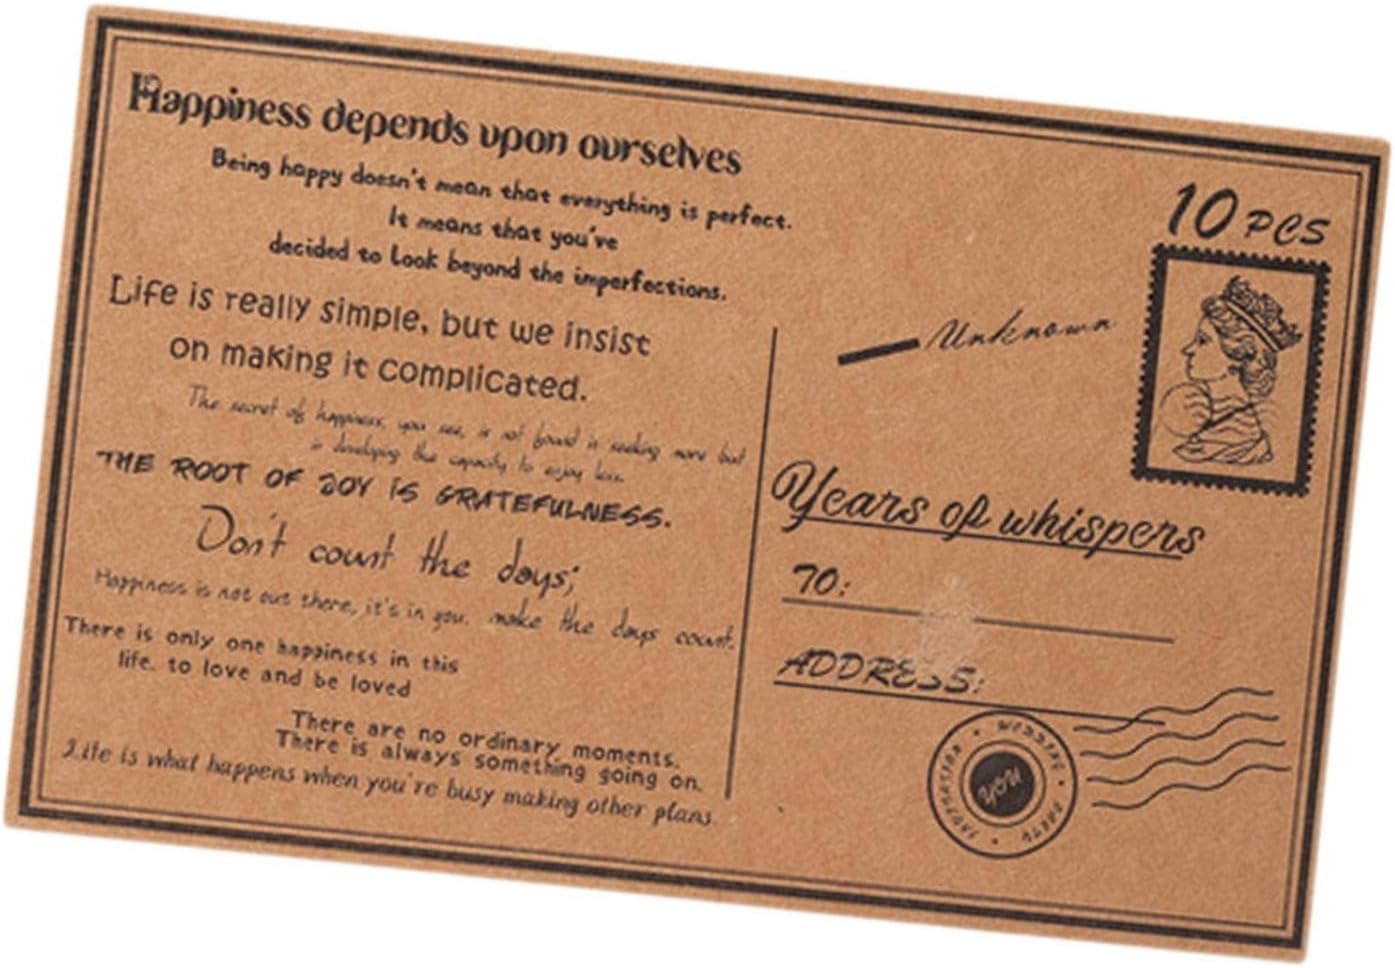 Happiness depends upon ourselves
Being happy doesn't mean that everything is perfect.
It means that you've
decided to look beyond the imperfections.
Life is really simple, but we insist
on making it complicated.
The secret of happiness, you see, is not found in seeking more but
in developing the capacity to enjoy less.
THE ROOT OF JOY IS GRATEFULNESS.
Don't count the days;
Happiness is not out there, it's in you. make the days count.
There is only one happiness in this
life. to love and be loved
There are no ordinary moments.
There is always something going on.
Life is what happens when you're busy making other plans.
10 PCS
Unknown
Years of whispers
TO:
ADDRESS:
WEDDING • PARTY • INVITATION
YOU